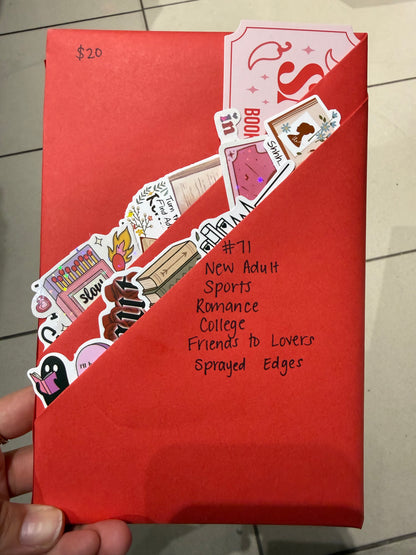 $20
BOOK
in
Shhh..
Turn
Find
slow
#71
New Adult
Sports
Romance
College
Friends to Lovers
Sprayed Edges